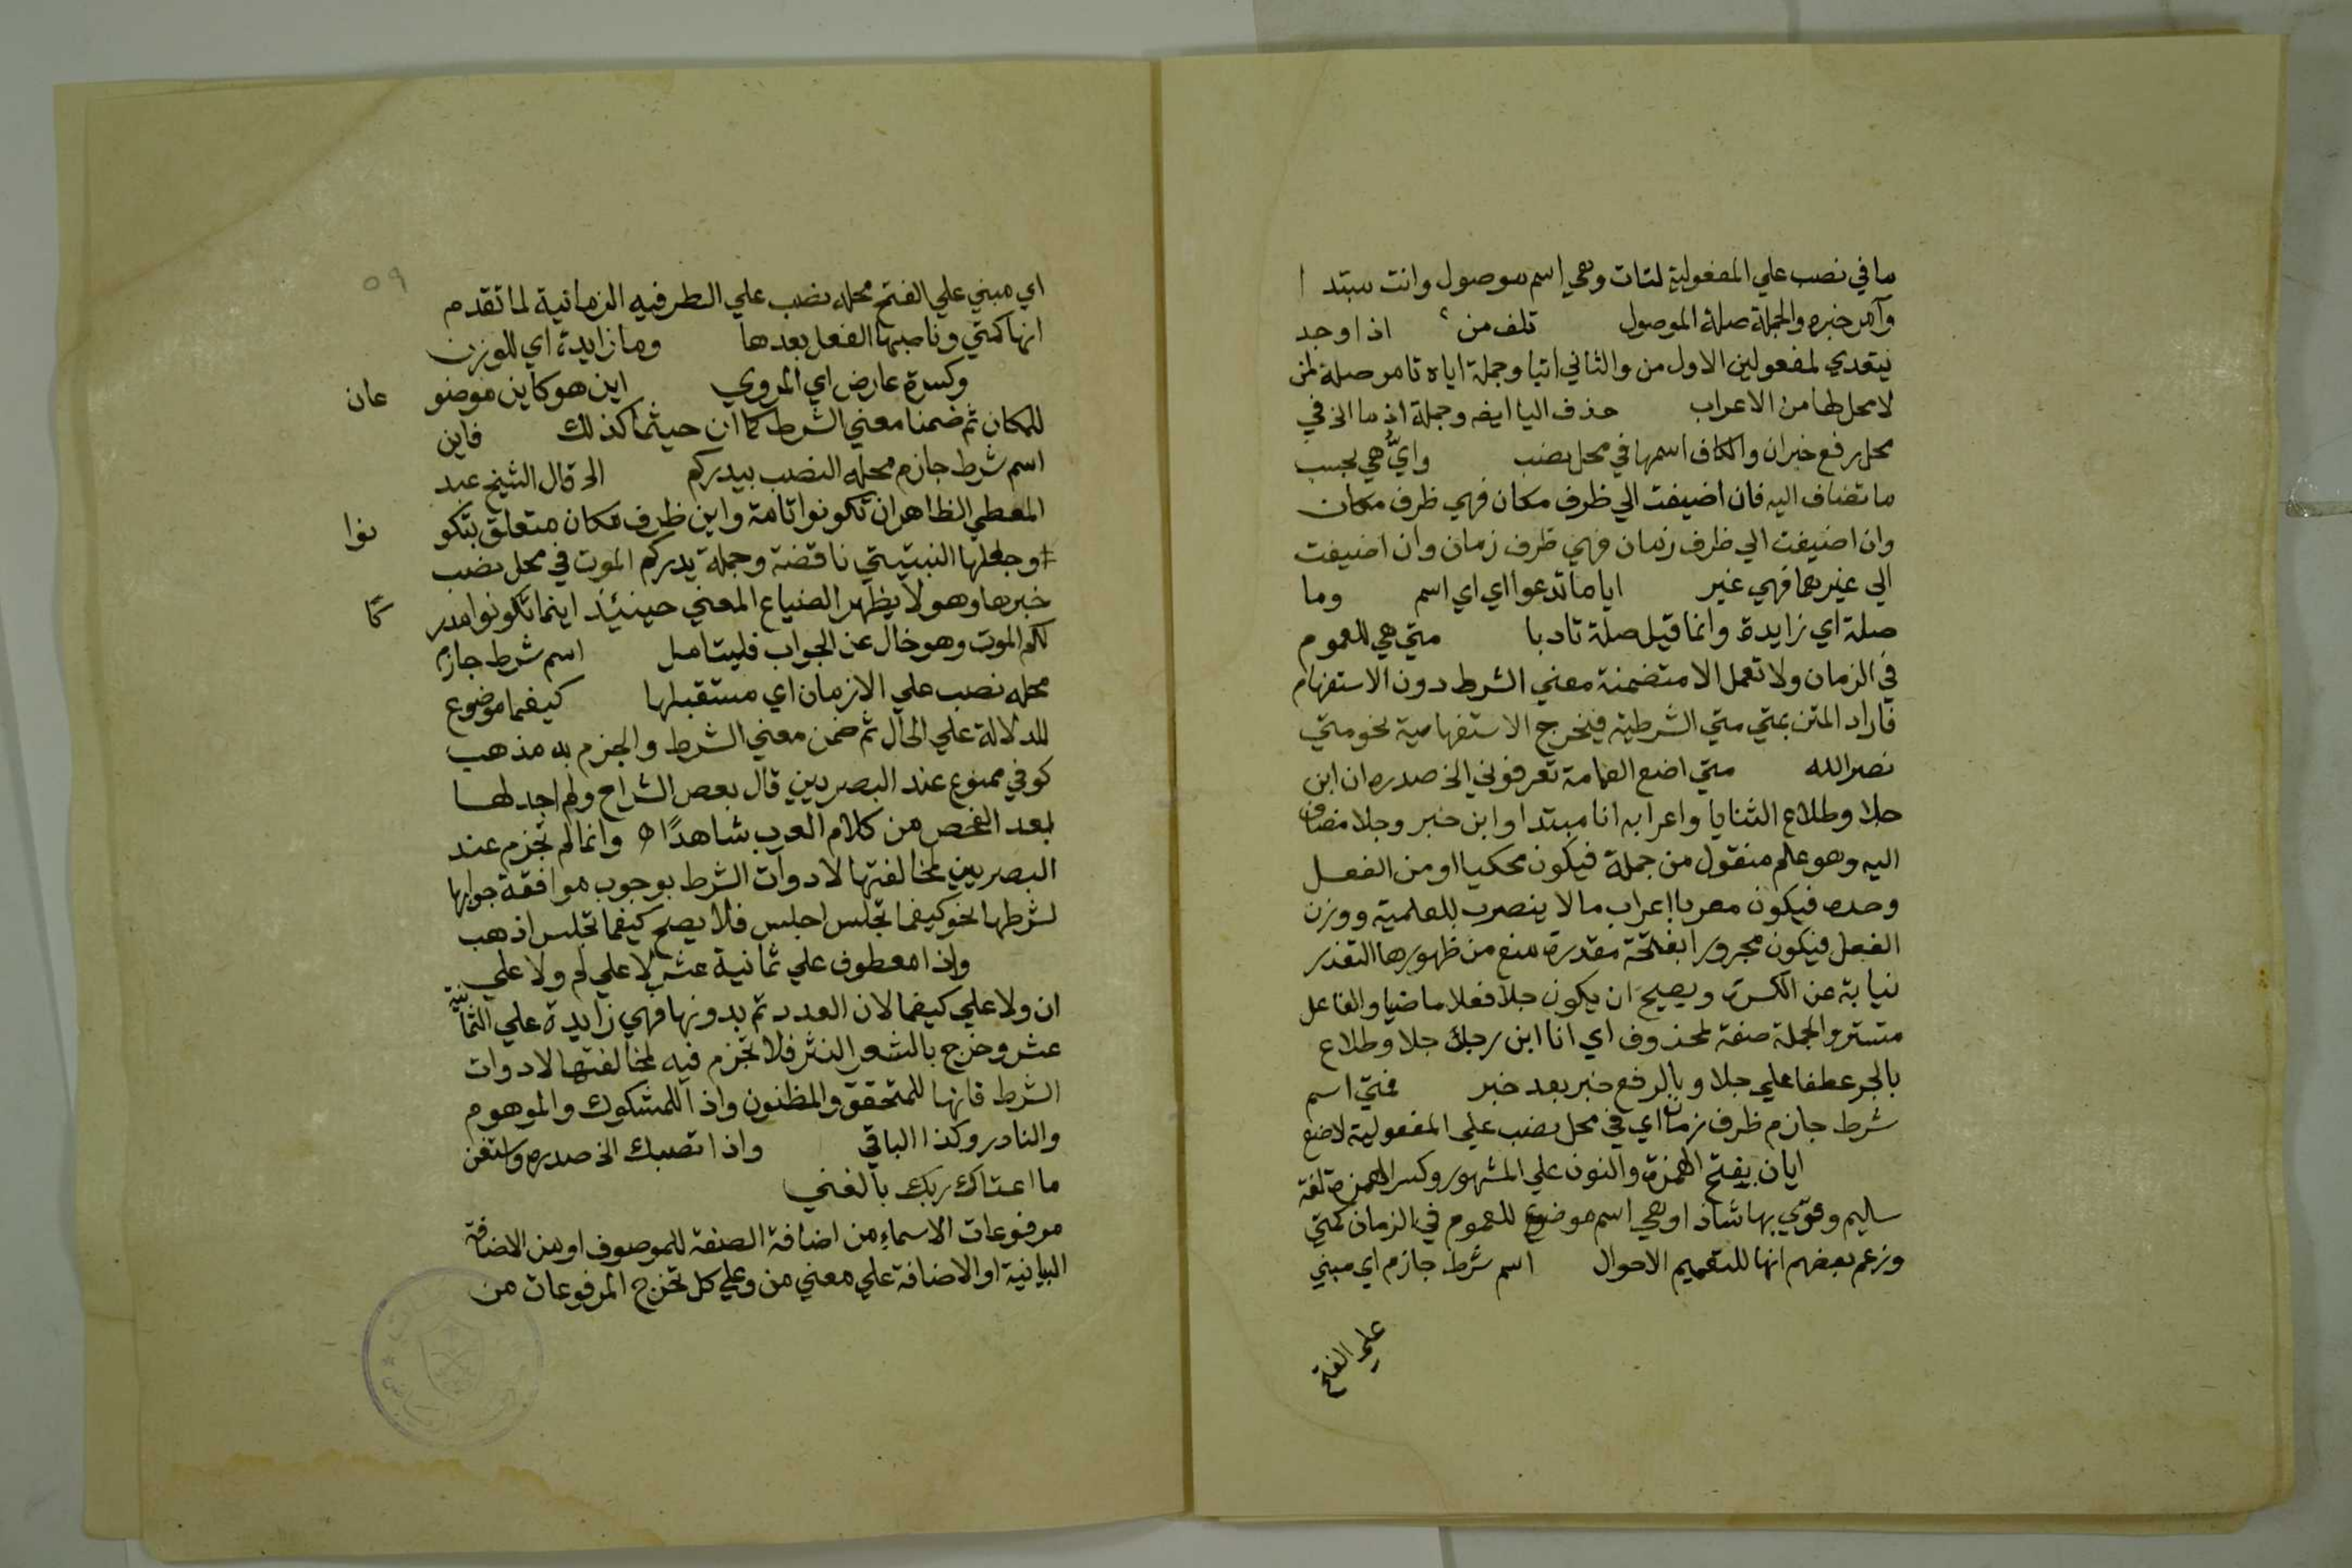 ما في نصب علي المفعولية لتات وهي اسم موصول وانت مبتدا
وآمر خبره والجملة صلة الموصول تلف من اذا وجد
يتعدي لمفعولين الاول من والثاني اتيا وجملة اياه تامر صلة لمن
لا محل لها من الاعراب حذف اليا ايضه وجملة اذ ما الخ في
محل رفع خبر ان والكاف اسمها في محل نصب وايّ هي بحسب
ما تضاف اليه فان اضيفت الي ظرف مكان فهي ظرف مكان
وان اضيفت الي ظرف زمان فهي ظرف زمان وان اضيفت
الي غيرهما فهي غير ايا ما تدعوا اي اي اسم وما
صلة اي زايدة وانما قيل صلة تادبا متي هي للعموم
في الزمان ولا تعمل الا متضمنة معني الشرط دون الاستفهام
فاراد المتن بمتي متي الشرطية فيخرج الاستفهامية نحو متي
نصر الله متي اضع العمامة تعرفوني الخ صدره ان ابن
جلا وطلاع الثنايا واعرابه انا مبتدا وابن خبر وجلا مضاف
اليه وهو علم منقول من جملة فيكون محكيا او من الفعل
وحده فيكون معربا اعراب ما لا ينصرف للعلمية ووزن
الفعل فيكون مجرورا بفتحة مقدرة منع من ظهورها التعذر
نيابة عن الكسرة ويصح ان يكون جلا فعلا ماضيا والفاعل
مستتر والجملة صفة لمحذوف اي انا ابن رجل جلا وطلاع
بالجر عطفا علي جلا وبالرفع خبر بعد خبر فمتي اسم
شرط جازم ظرف زمان اي في محل نصب علي المفعولية لاضع
ايان بفتح الهمزة والنون علي المشهور وكسر الهمزة لغة
سليم وقوي بها شاذا وهي اسم موضوع للعموم في الزمان كمتي
وزعم بعضهم انها للتعميم الاحوال اسم شرط جازم اي مبني
علي الفتح
٥٩
اي مبني علي الفتح محله نصب علي الظرفيه الزمانية لما تقدم
انها كمتي وناصبها الفعل بعدها وما زايدة اي للوزن
وكسرة عارض اي الروي اين هو كاين موضوعان
للمكان ثم ضمنا معني الشرط كما ان حيثما كذلك فاين
اسم شرط جازم محله النصب بيدركم الخ قال الشيخ عبد
المعطي الظاهر ان تكونوا تامة واين ظرف مكان متعلق بتكونوا
وجعلها النبتيتي ناقصة وجملة يدركم الموت في محل نصب
خبرها وهو لا يظهر لضياع المعني حينئذ اينما تكونوا مدركا
لكم الموت وهو خال عن الجواب فليتامل اسم شرط جازم
محله نصب علي الازمان اي مستقبلها كيفما موضوع
للدلالة علي الحال ثم ضمن معني الشرط والجزم به مذهب
كوفي ممنوع عند البصريين قال بعض الشراح ولم اجد لها
بعد الفحص من كلام العرب شاهدًا اه وانما لم تجزم عند
البصريين لمخالفتها لادوات الشرط بوجوب موافقة جوابها
لشرطها نحو كيفما تجلس اجلس فلا يصح كيفما تجلس اذهب
واذا معطوف علي ثمانية عشر لا علي لم ولا علي
ان ولا علي كيفما لان العدد تم بدونها فهي زايدة علي الثمانية
عشر وخرج بالشعر النثر فلا تجزم فيه لمخالفتها لادوات
الشرط فانها للمتحقق والمظنون واذا للمشكوك والموهوم
والنادر وكذا الباقي واذا تصبك الخ صدره واستغن
ما اغناك ربك بالغني
مرفوعات الاسماء من اضافة الصفة للموصوف او من الاضافة
البيانية او الاضافة علي معني من وعلي كل تخرج المرفوعات من